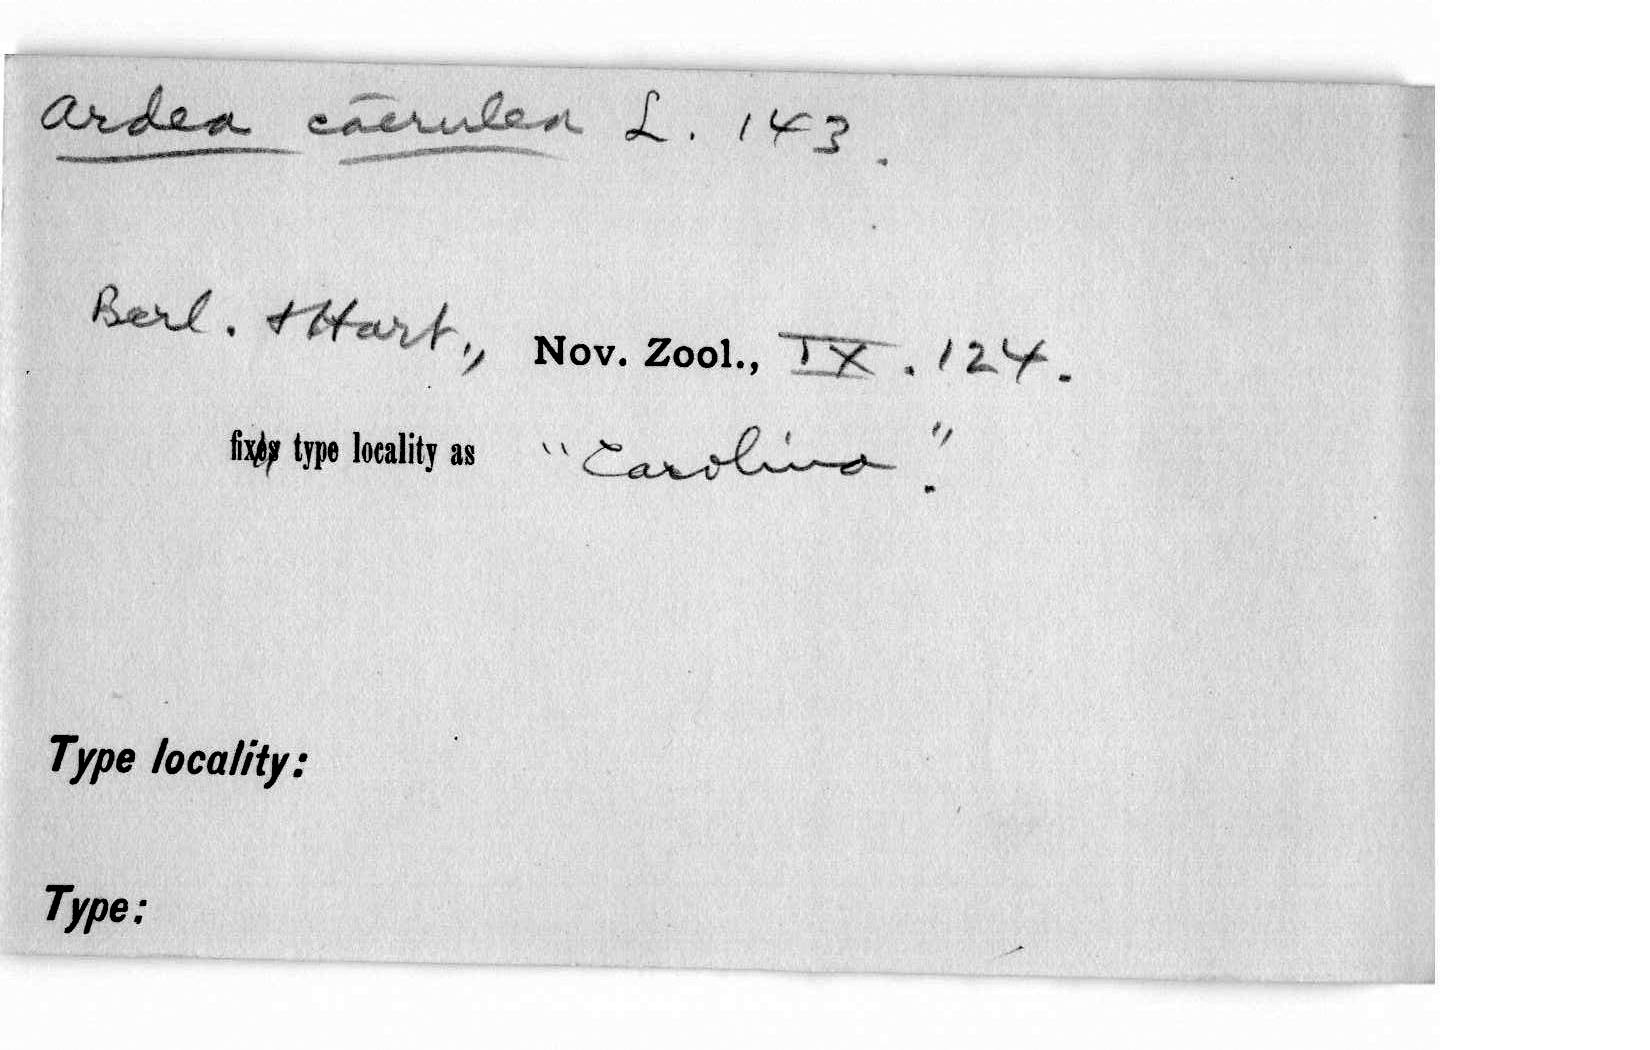 Ardea cāerulea L. 143.
Berl. + Hart., Nov. Zool., IX. 124.
fix type locality as "Carolina".
Type locality:
Type: